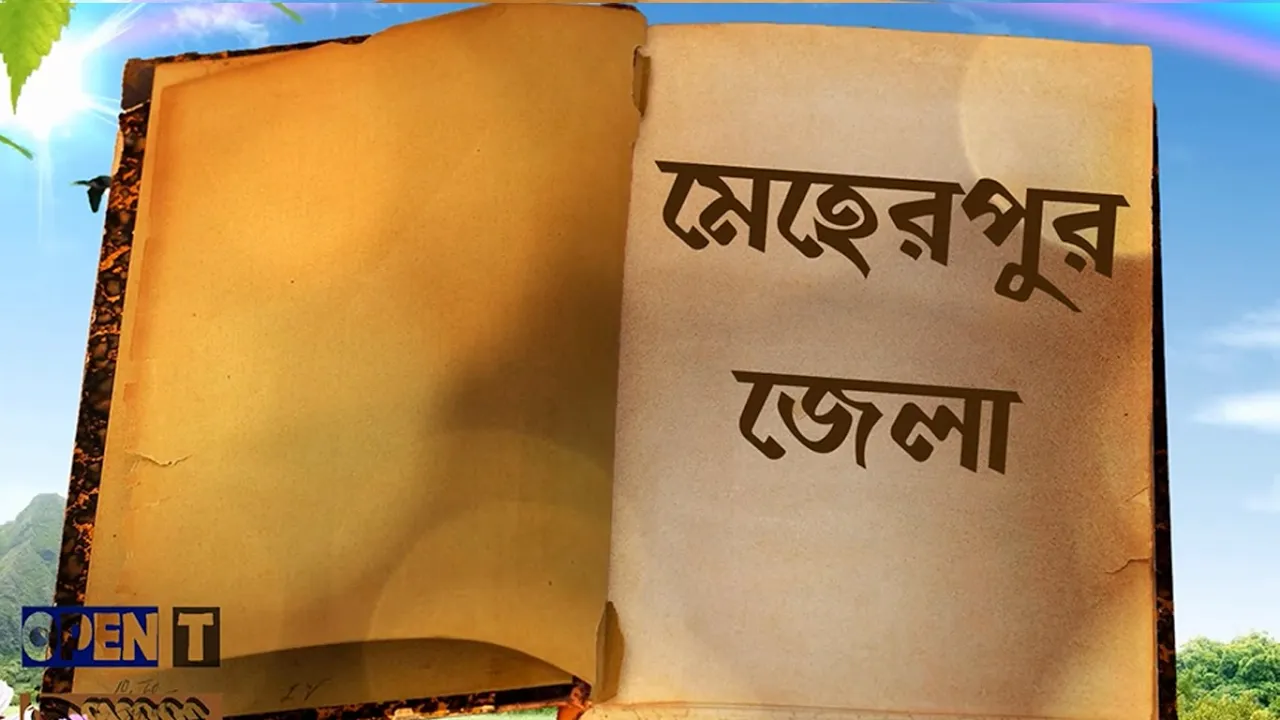 মেহেরপুর
জেলা
OPEN T